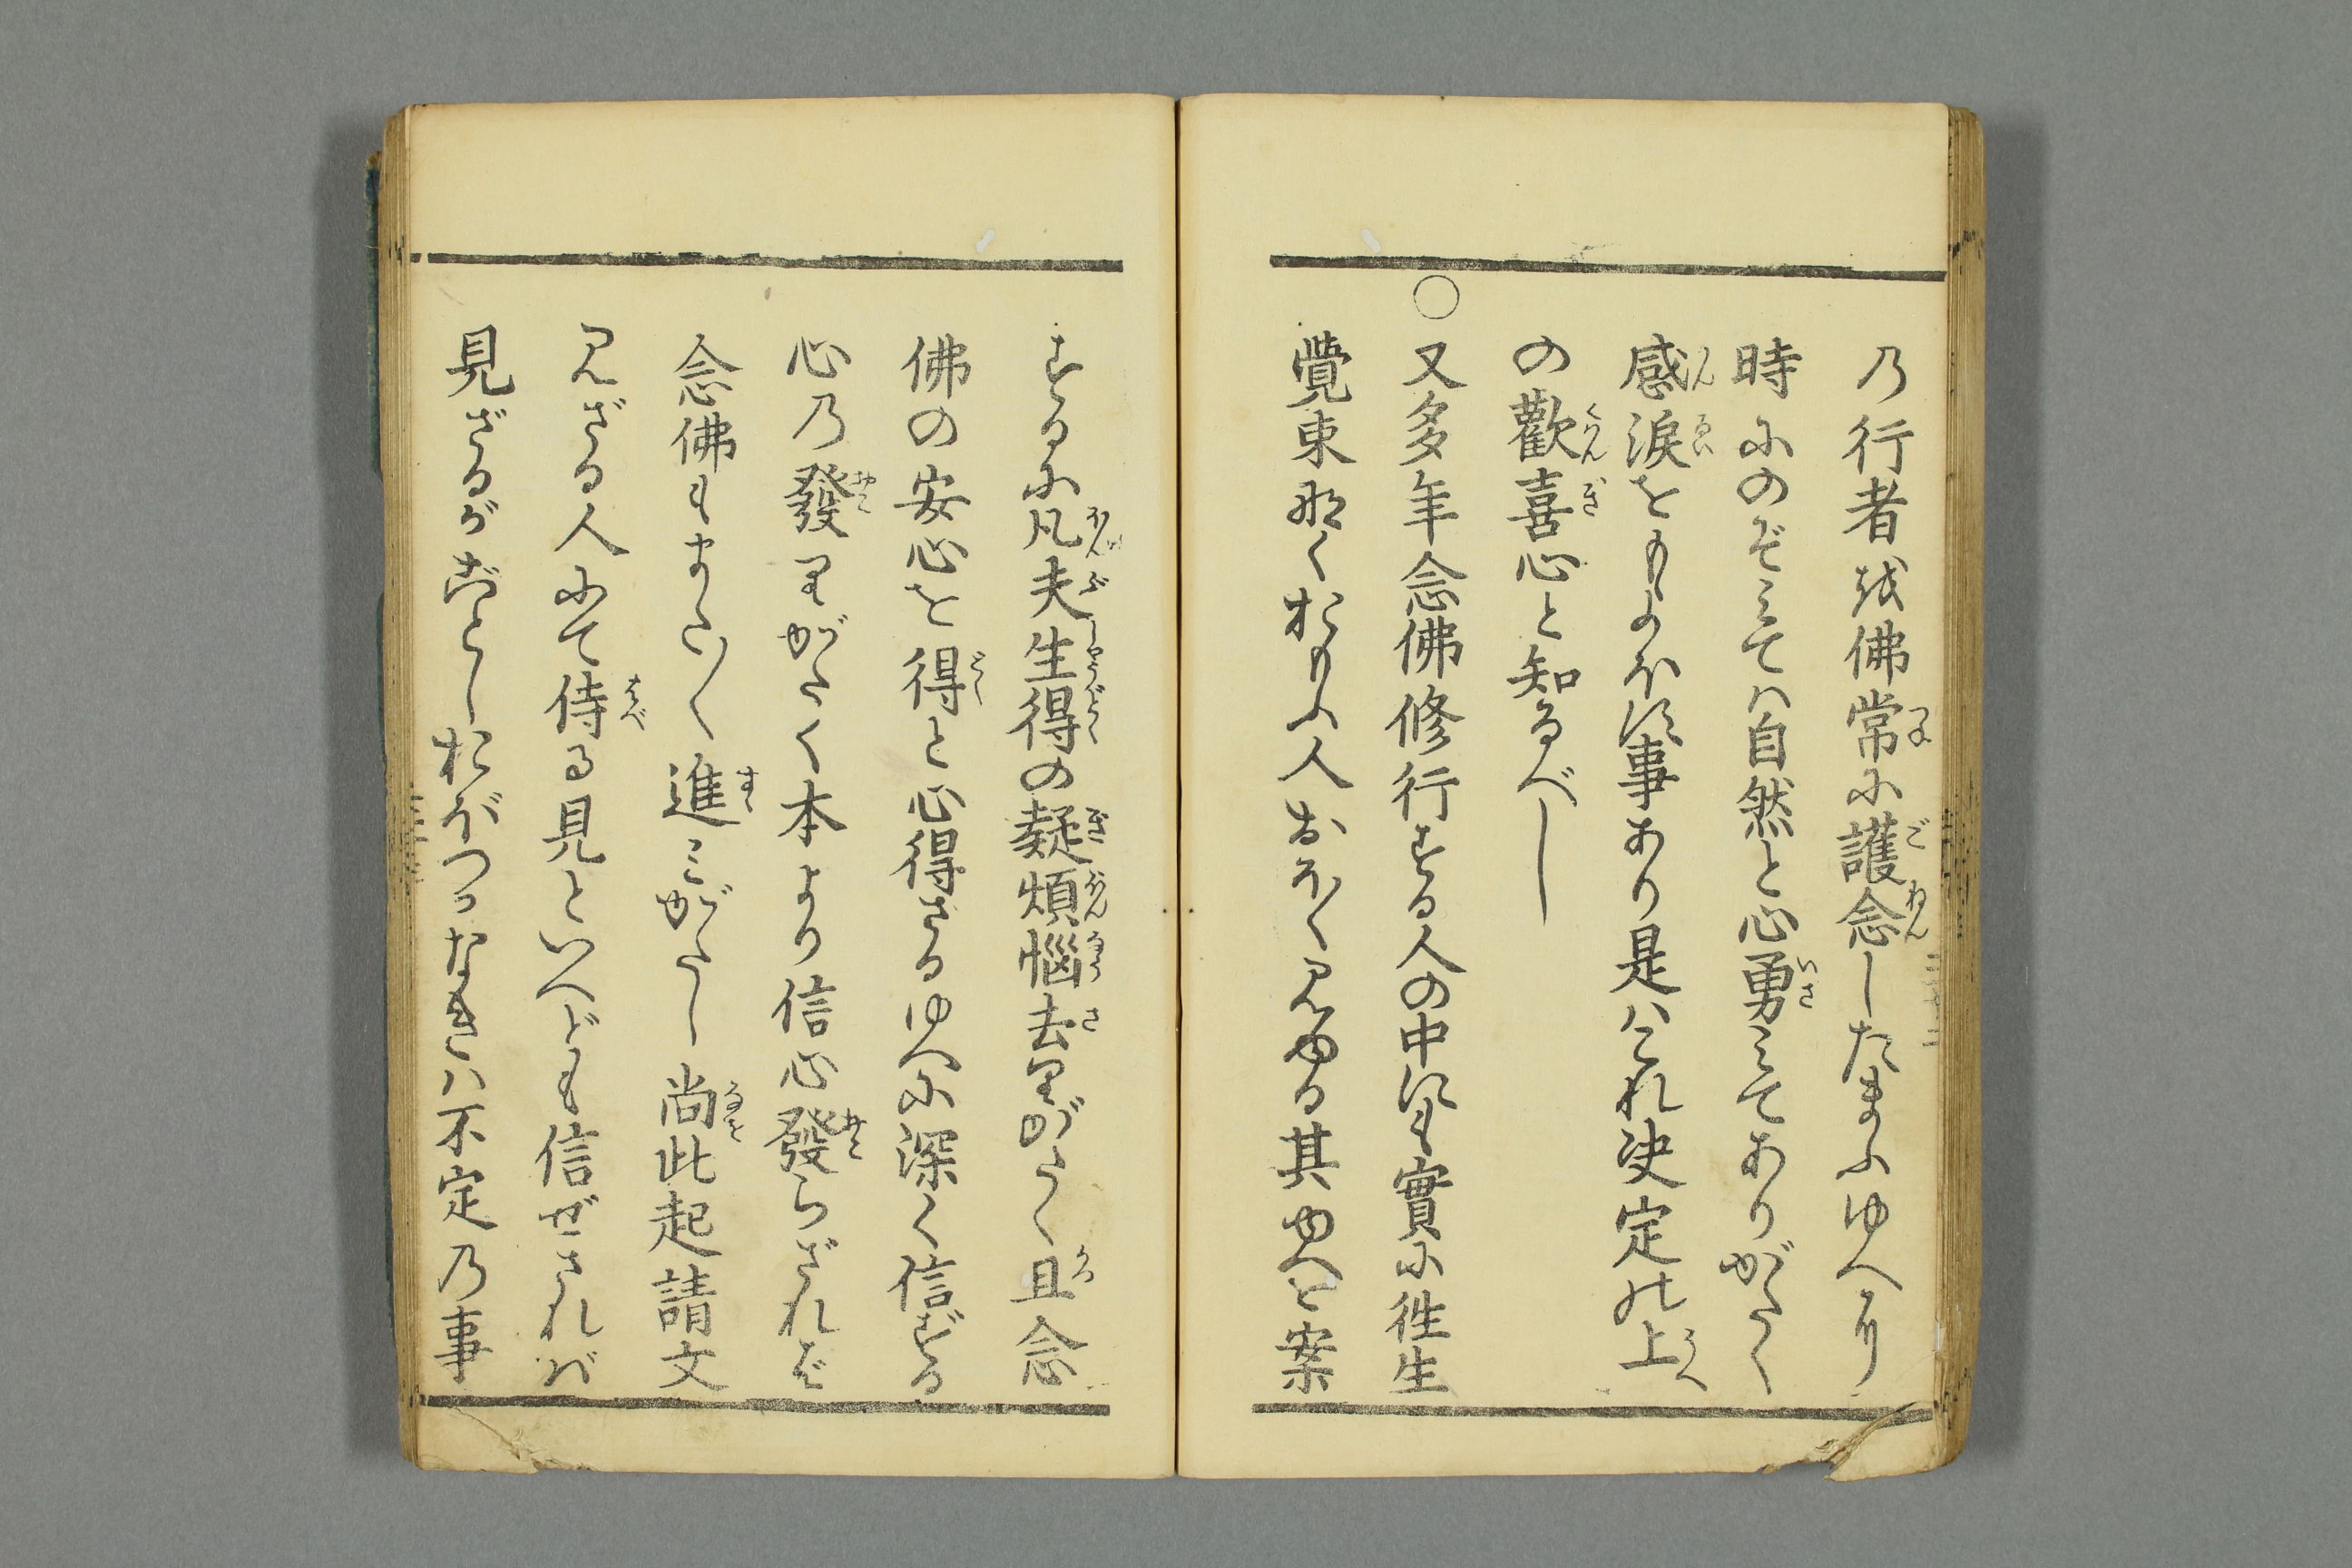 乃行者を佛常に護念したまふゆへなり
時にのぞみては自然と心勇みてありがたく
感涙をもよほす事あり是はこれ决定の上
の歡喜心と知るべし
○又多年念佛修行する人の中にも實に徃生
覺束なくおもふ人おほく見ゆる其ゆへを案
するに凡夫生得の疑煩惱去りがたく且念
佛の安心を得と心得ざるゆへに深く信ずる
心乃發りがたく本より信心發らざれば
念佛もまたく進みがたし尚此起請文
見ざる人にて侍る見といへども信ぜされば
見ざるがごとしおぼつかなきは不定乃事